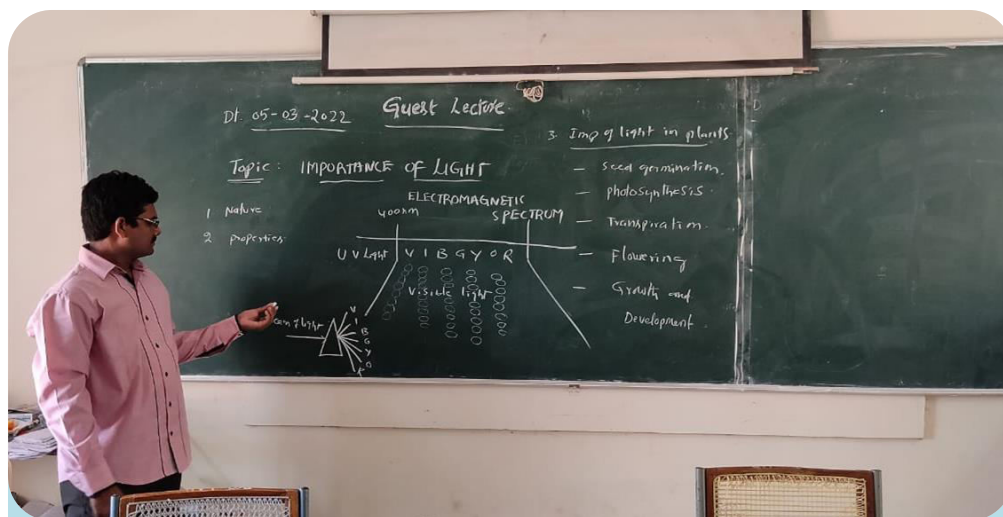 Dt. 05-03-2022
Guest Lecture.
Topic: IMPORTANCE OF LIGHT
1 Nature
2 properties
ELECTROMAGNETIC
SPECTRUM
400nm
UV Light V I B G Y O R
visible light
of light
V
I
B
G
Y
O
R
3. Imp of light in plants.
- Seed germination.
- photosynthesis.
- Transpiration.
- Flowering
- Growth and
Development.